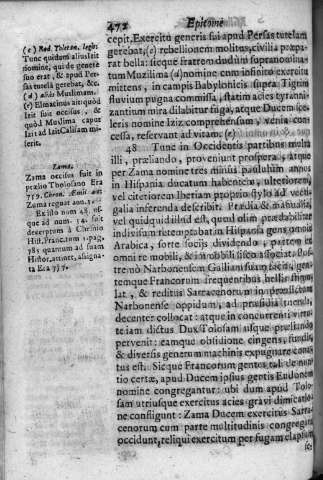 472 Epitome
(c) Rod. Toletan. legit:
Tunc quidam alius Izit
nomine, qui de genere
suo erat, & apud Per-
sas tutelā gerebat, &c.
(d) aliàs Muslimum.
(e) Elmacinus ait quòd
Izit suit occisus, &
quòd Muslima caput
Izit ad
misit.
Zama.
Zama occisus fuit in
prælio Tolosano Era
759. Chron.
Zama regnat ann. 3.
Ex isto num. 48. us-
que ad num.
desceptum à
Hist. Francorum 1. pag.
785 quantum ad suam
Histor. attinet, assigna-
ta Era 757.
cepit. Exercitu generis sui apud Persas tutelam
gerebat, (c) rebellionem molitus, civilia præpa-
rat bella: sicque fratrem dudum supranomina-
tum Muzilima (d) nomine cum infinito exercitu
mittens, in campis Babylonicis supra Tigrim
fluvium pugna commissa, statim acies tyranni-
zantium mira dilabitur fuga, atque Ducem sce-
leris nomine Izit comprehensum, venia con-
cessa, reservant ad vitam. (e)
48 Tunc in Occidentis partibus multa
illi, præliando, proveniunt prospera, atque
per Zama nomine tres minùs paululùm annos
in Hispania ducatum habentem, ulteriorem,
vel citeriorem Iberiam proprio stylo ad vecti-
galia inferenda describit. Prædia & manualia,
vel quidquid illud est, quod olim prædabiliter
indivisum retemptabat in Hispania gens omnis
Arabica, sorte sociis dividendo, partem ex
omni re mobili, & immobili fisco associat. Post-
remò Narbonensem Galliam suam facit, gen-
temque Francorum frequentibus bellis
lat, & reditus Sarracenorum in
Narbonense oppidum, ad præsidia tuenda
decenter collocat: atque in concurrenti virtu-
te iam dictus Dux Tolosam usque præliando
pervenit: eamque obsidione cingens, fundis,
& diversis generum machinis expugnare cona-
tus est. Sicque Francorum gentes tali de nun-
tio certæ, apud Ducem ipsius gentis Eudonem
nomine congregantur: ubi dum apud Tolo-
sam utriusque exercitus acies gravi dimicatio-
ne confligunt: Zama Ducem exercitus Sarra-
cenorum cum parte multitudinis congregatæ
occidunt, reliqui exercitum per fugam elapsum